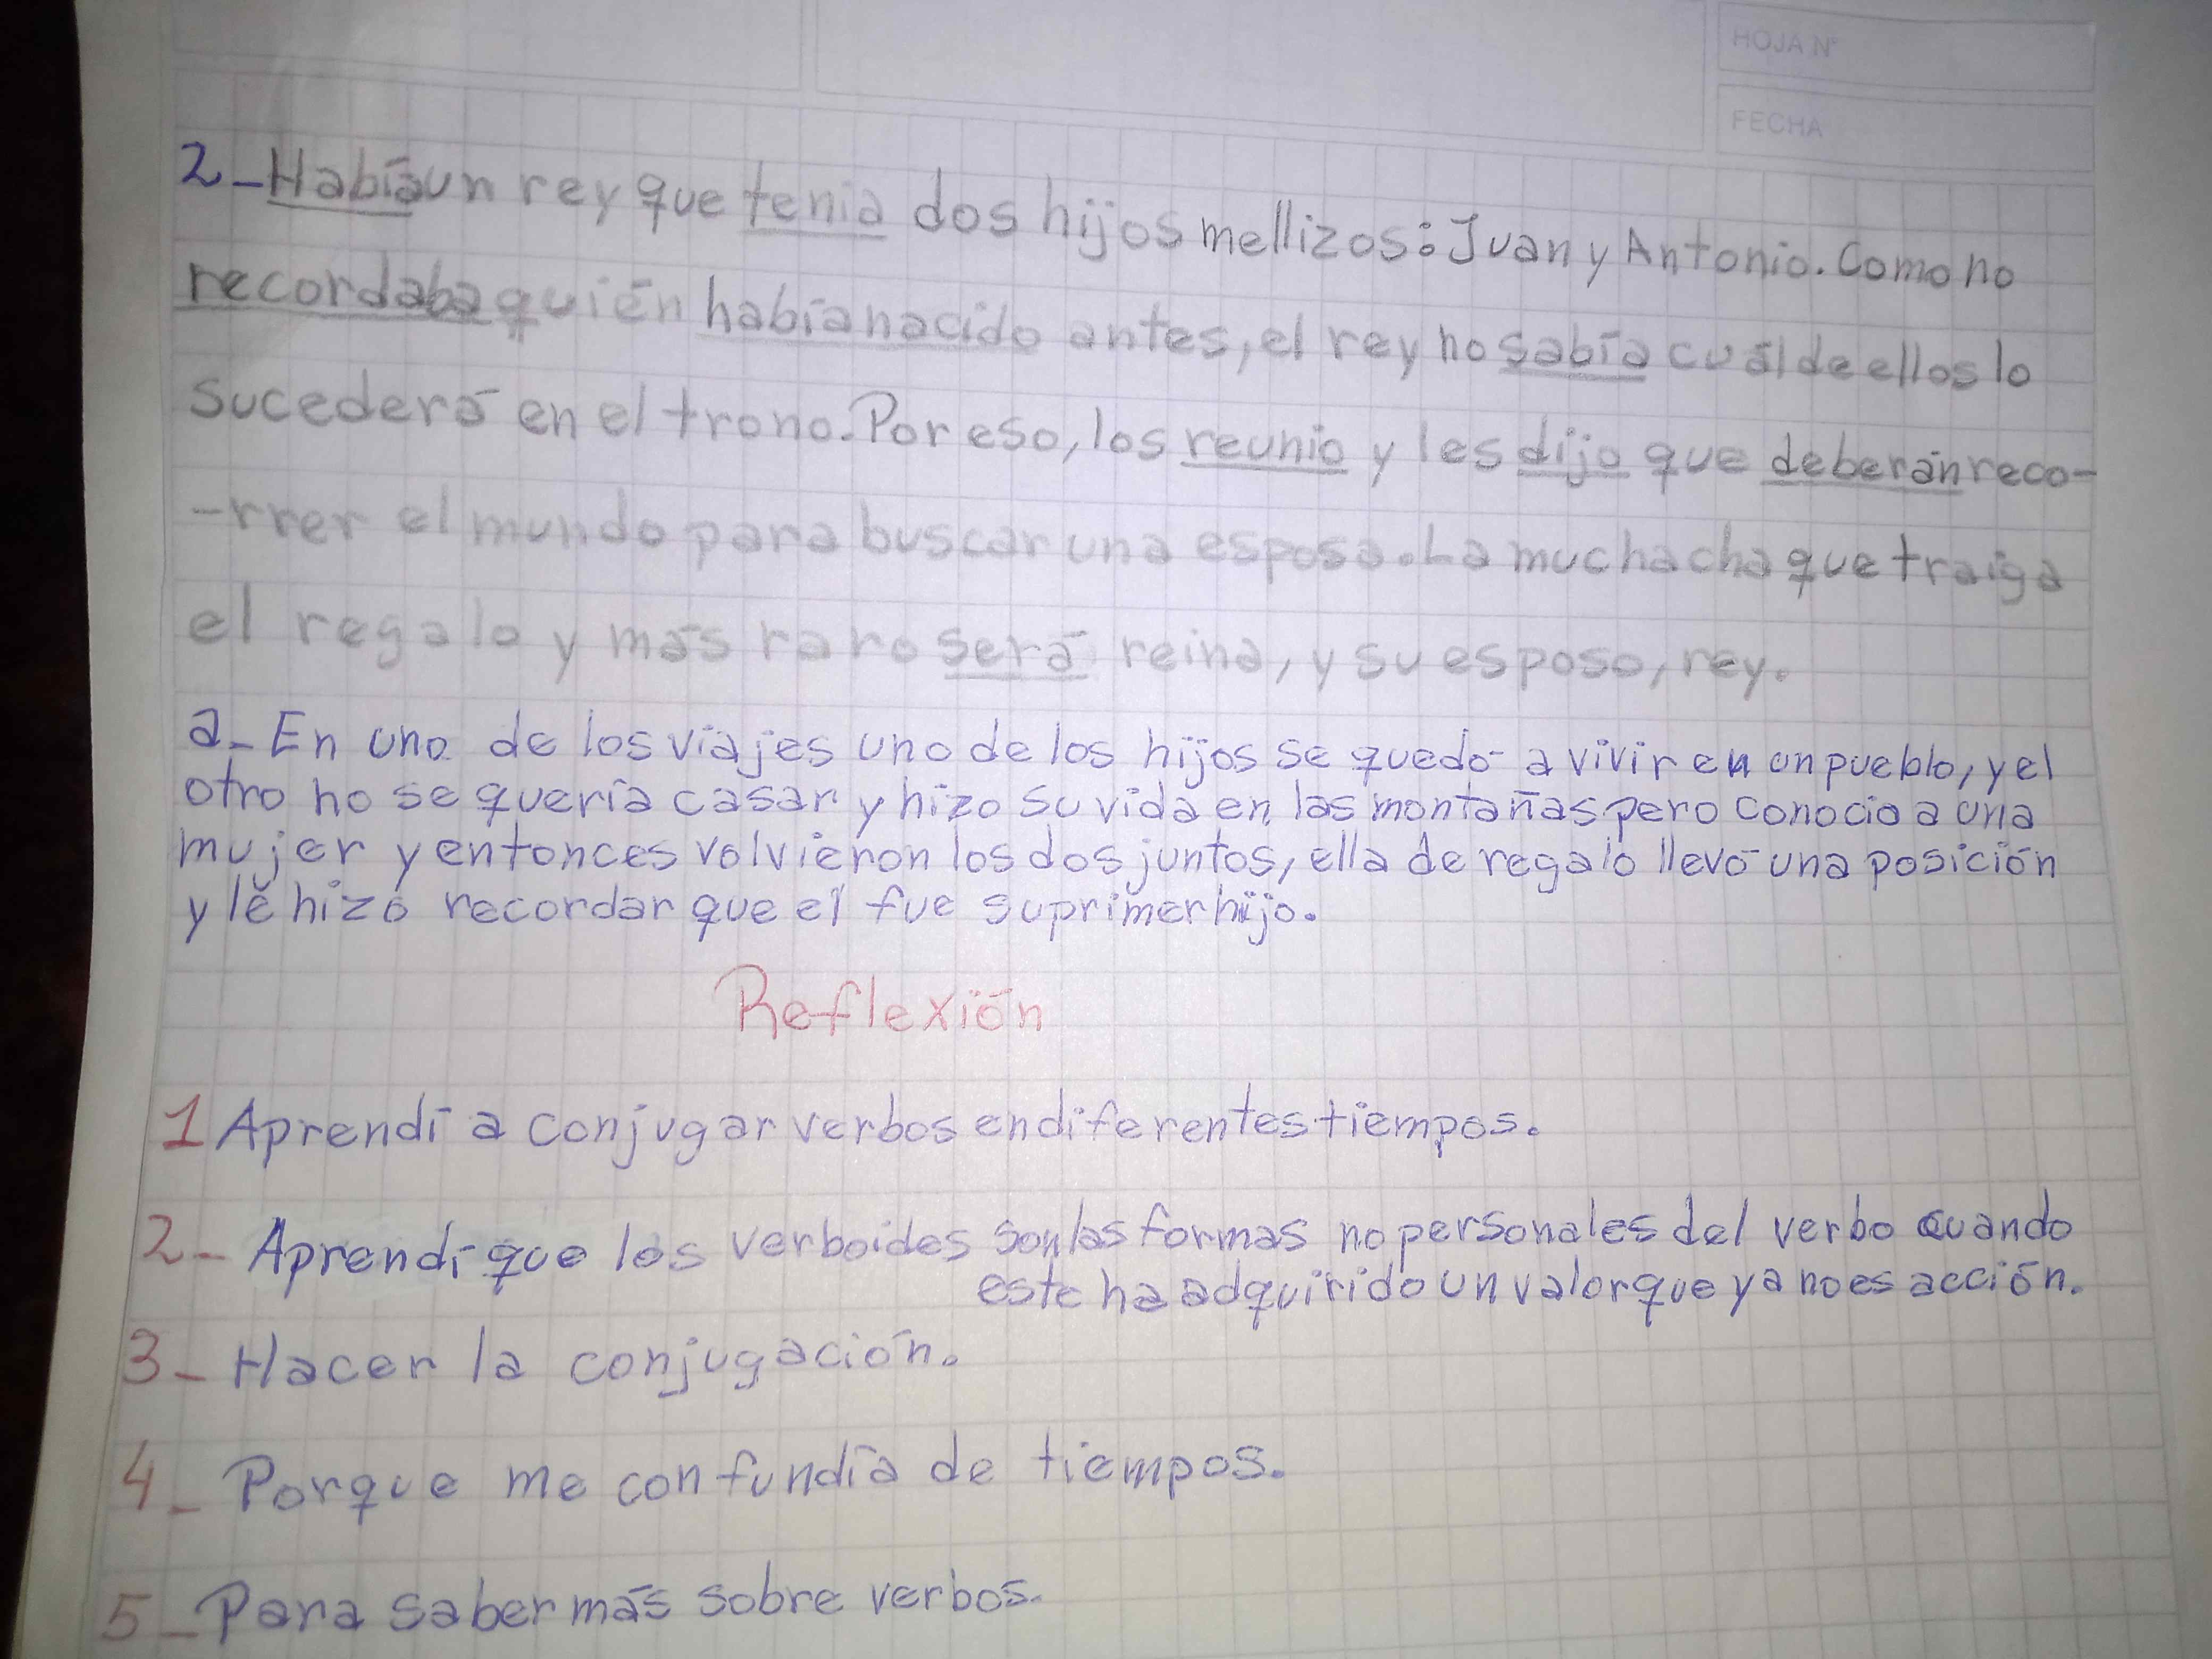 HOJA N°
FECHA
2-Había un rey que tenía dos hijos mellizos: Juan y Antonio. Como no
recordaba quién había nacido antes, el rey no sabía cuál de ellos lo
sucederá en el trono. Por eso, los reunio y les dijo que deberán reco-
-rrer el mundo para buscar una esposa. La muchacha que traiga
el regalo y más raro será reina, y su esposo, rey.
a- En uno de los viajes uno de los hijos se quedó a vivir en un pueblo, y el
otro no se quería casar y hizo su vida en las montañas pero conocio a una
mujer y entonces volvieron los dos juntos, ella de regalo llevó una posición
y le hizo recordar que el fue su primer hijo.
Reflexión
1 Aprendí a conjugar verbos en diferentes tiempos.
2- Aprendí que los verboides son las formas no personales del verbo cuando
este ha adquirido un valor que ya no es acción.
3- Hacer la conjugación.
4- Porque me confundía de tiempos.
5- Para saber más sobre verbos.